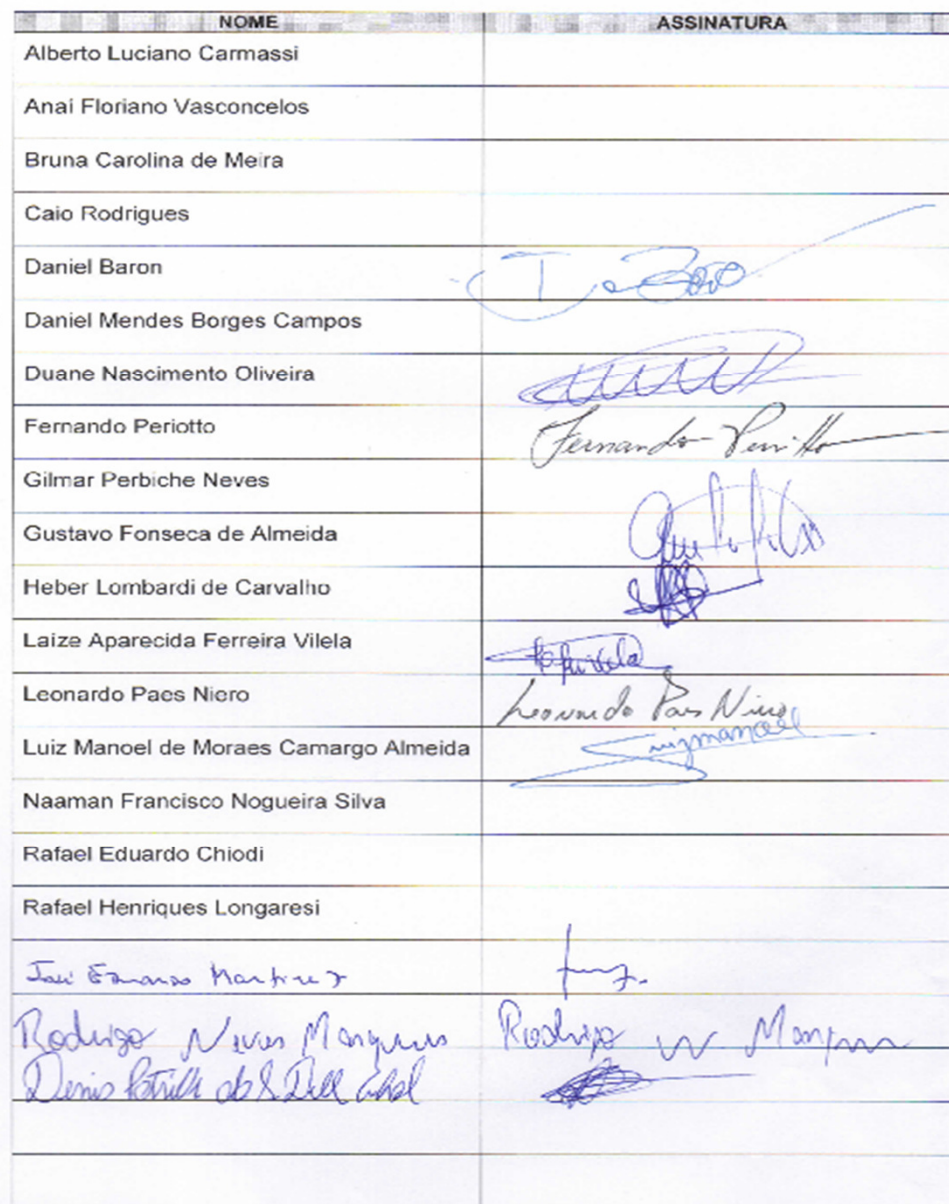 NOME ASSINATURA
Alberto Luciano Carmassi
Anaí Floriano Vasconcelos
Bruna Carolina de Meira
Caio Rodrigues
Daniel Baron
Daniel Mendes Borges Campos
Duane Nascimento Oliveira
Fernando Periotto Fernando Periotto
Gilmar Perbiche Neves
Gustavo Fonseca de Almeida
Heber Lombardi de Carvalho
Laize Aparecida Ferreira Vilela
Leonardo Paes Niero Leonardo Paes Niero
Luiz Manoel de Moraes Camargo Almeida Luizmanoel
Naaman Francisco Nogueira Silva
Rafael Eduardo Chiodi
Rafael Henriques Longaresi
José Eduardo Martinez
Rodrigo Neves Marques Rodrigo N. Marques
Denis